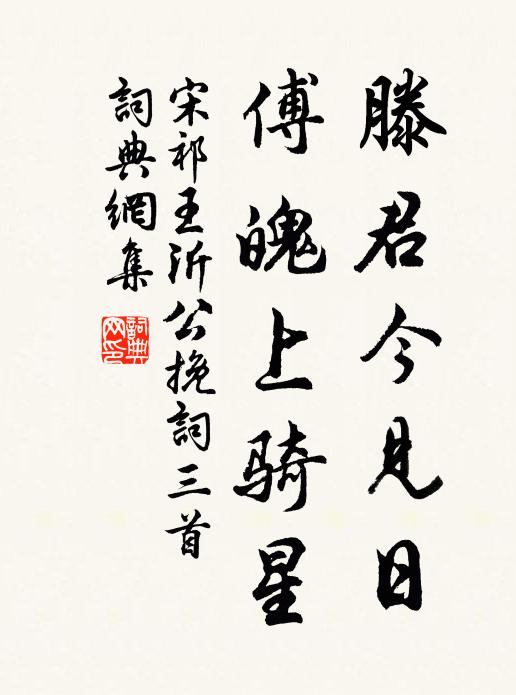 滕君今見日
傅魄上骑星
宋祁王沂公挽詞三首
詞典網集
詞典网印